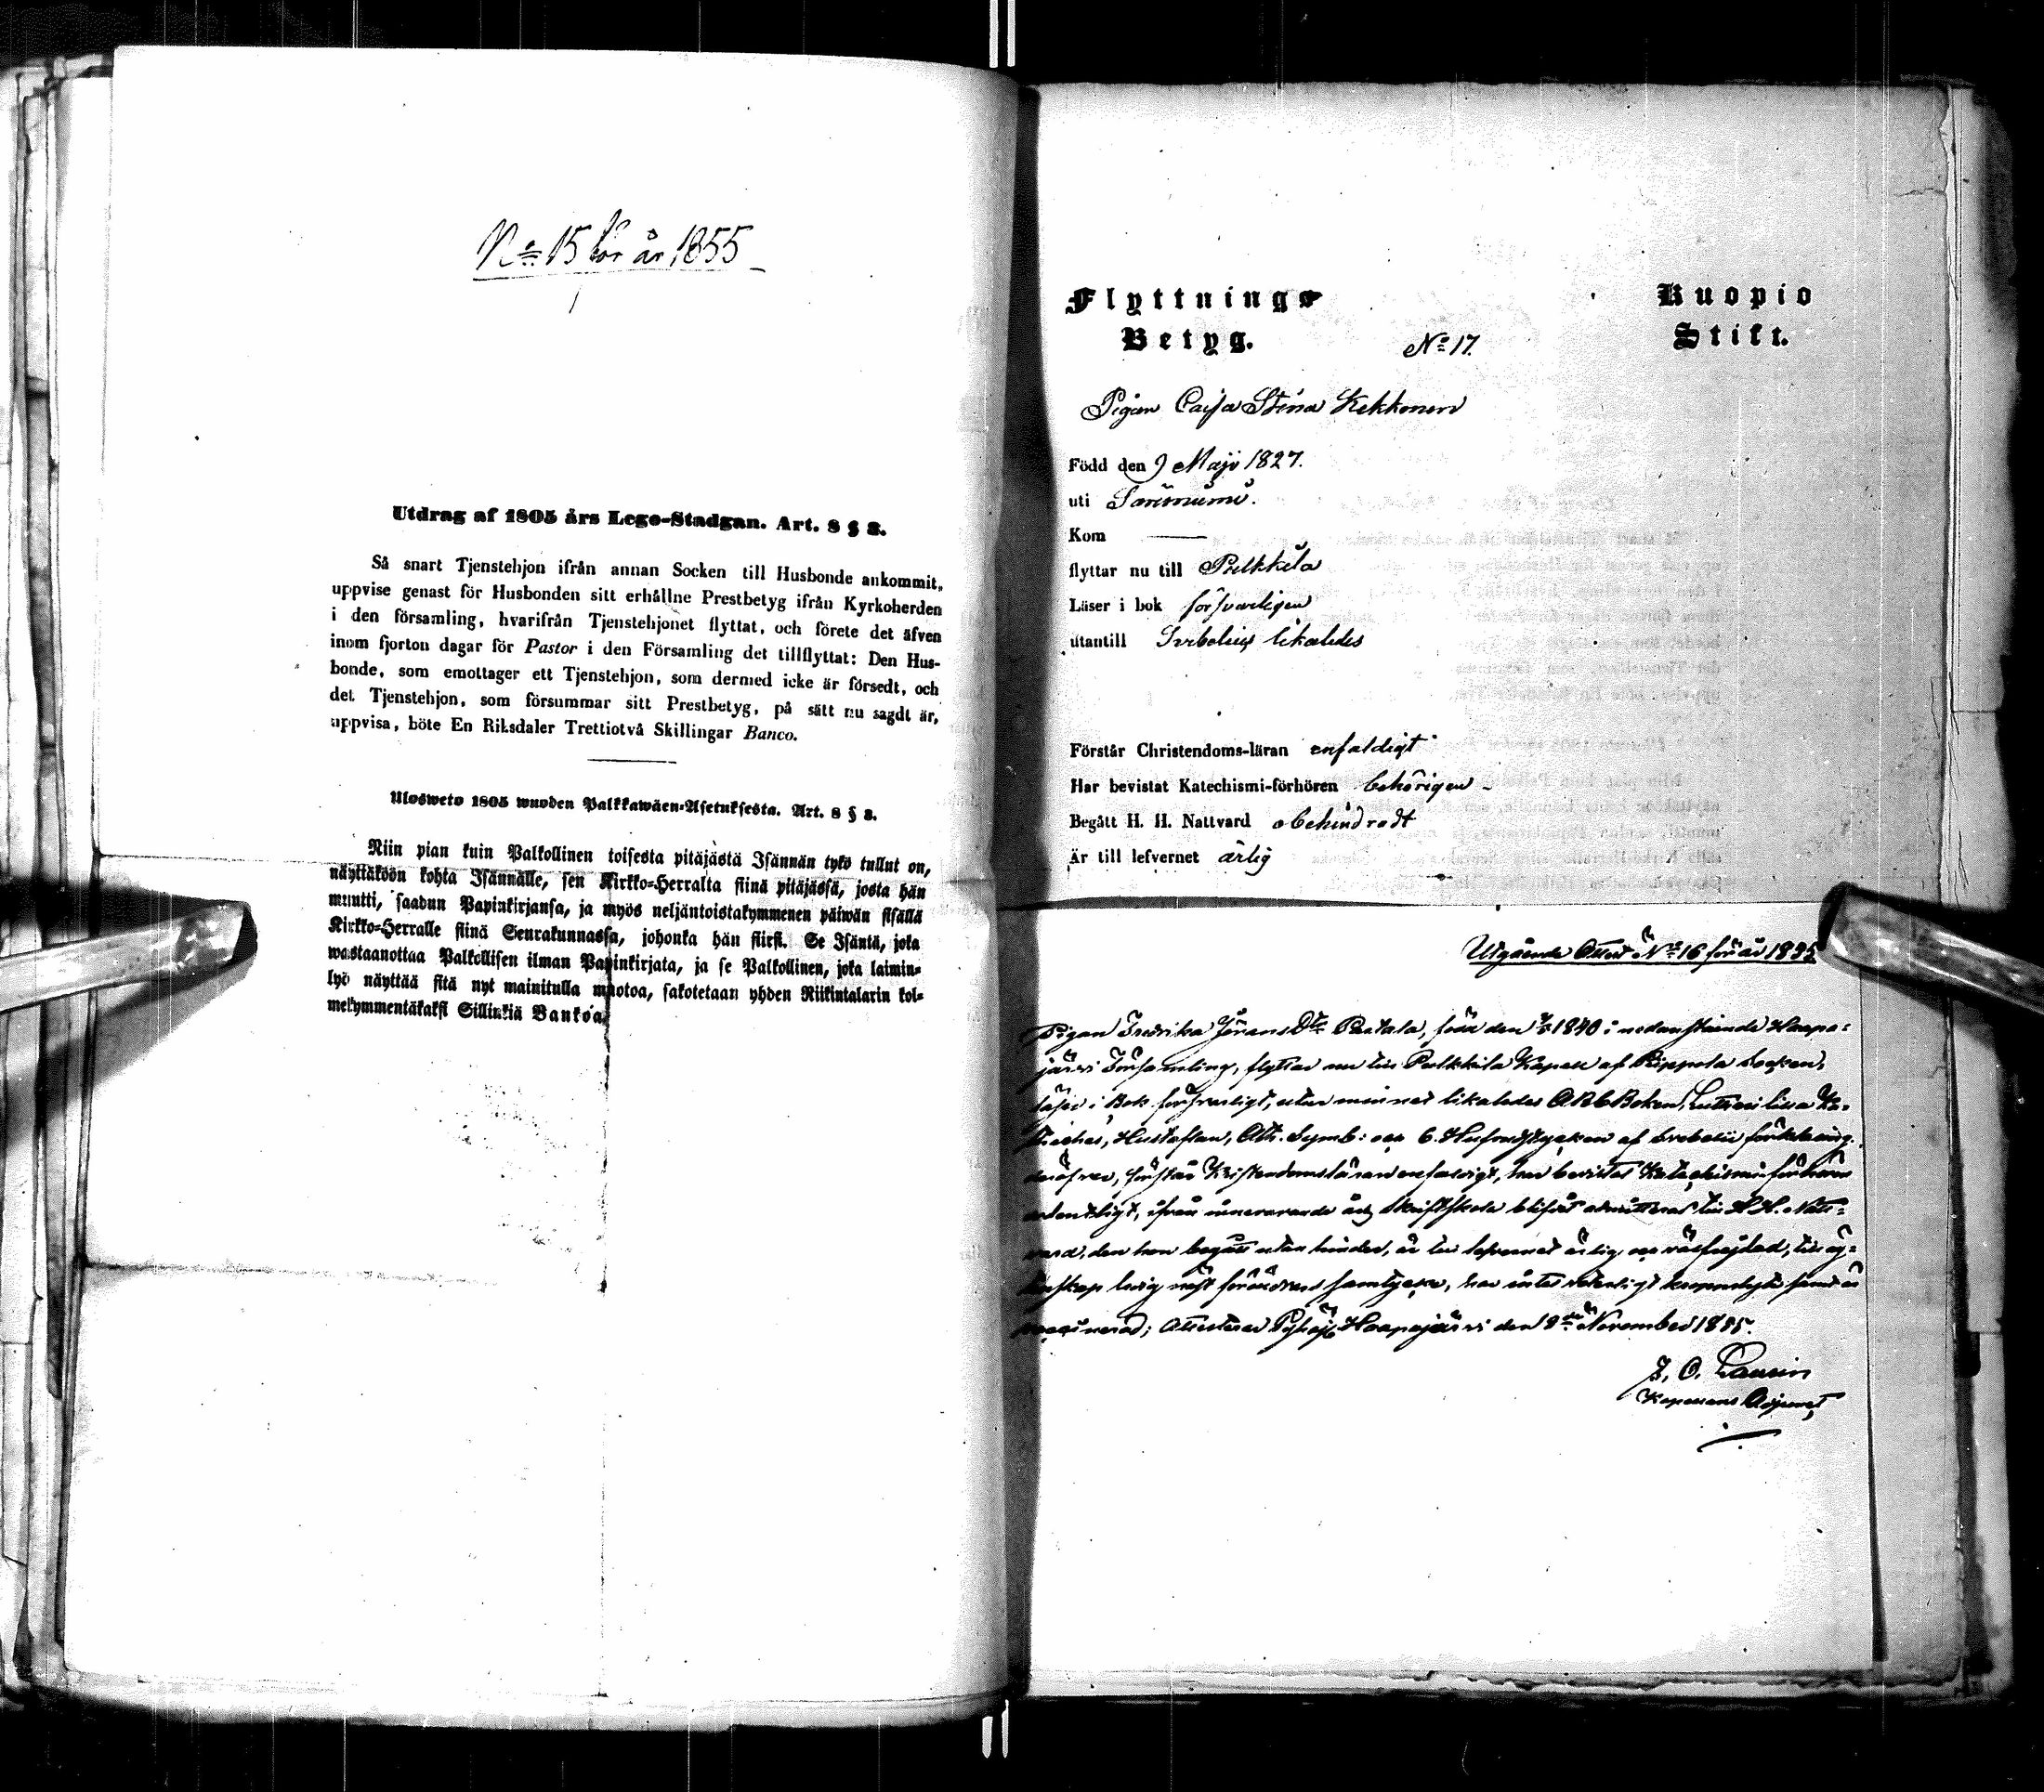 No 15 för år 1855
Utdrag af 1805 års Lego-Stadgan. Art. 8 § 2.
Så snart Tjenstehjon ifrån annan Socken till Husbonde ankommit,
uppvise genast för Husbonden sitt erhållne Prestbetyg ifrån Kyrkoherden
i den församling, hvarifrån Tjenstehjonet flyttat, och förete det äfven
inom fjorton dagar för Pastor i den Församling det tillflyttat: Den Hus-
bonde, som emottager ett Tjenstehjon, som dermed icke är försedt, och
det Tjenstehjon, som försummar sitt Prestbetyg, på sätt nu sagdt är,
uppvisa, böte En Riksdaler Trettiotvå Skillingar Banco.
Ulosweto 1805 wuoden Palkkawäen-Asetuksesta. Art. 8 § 2.
Niin pian kuin Palkollinen toisesta pitäjästä Isännän tykö tullut on,
näyttäköön kohta Isännälle, sen Kirkko-Herralta siinä pitäjässä, josta hän
muutti, saadun Papinkirjansa, ja myös neljäntoistakymmenen päiwän sisällä
Kirkko-Herralle siinä Seurakunnassa, johonka hän siirsi. Se Isäntä, joka
wastaanottaa Palkollisen ilman Papinkirjata, ja se Palkollinen, joka laimin-
lyö näyttää sitä nyt mainitulla muotoa, sakotetaan yhden Riikintalarin kol-
mekymmentäkaksi Sillinkiä Bankoa.
Flyttnings
Betyg.
No 17.
Kuopio
Stift.
Pigan Caisa Stina Kekkonen
Född den 9 Maji 1827.
uti
Kom
flyttar nu till Pulkkila
Läser i bok försvarligen
utantill Svebelius likaledes
Förstår Christendoms-läran enfaldigt
Har bevistat Katechismi-förhören behörigen
Begått H. H. Nattvard obehindradt
Är till lefvernet ärlig
Utgående Attest No 16 för år 1855
Pigan Fredrika Görans Dtr född den 1840 i nedanstående Haapa-
järvi Församling, flyttar nu till Pulkkila Kapell af Piippola Socken,
läser i Bok försvarligt, utur minnet likaledes ABC Boken, Lutheri lilla
Hustaflan, Ath. Symb: och 6 Hufvudstycken af Svebelii förklaring
förstår Kristendomsläran enfaldigt, har bevistat Katechismi förhören
ordentligt, ifrån innevarande års Skriftskola blifvit admitterad till H. H. Natt-
vard, den hon begått utan hinder, är till lefvernet ärlig och välfrejdad, till äg-
tenskap ledig näst föräldrars samtycke, har
vaccinerad; Attesterar Haapajärvi den November 1855.
Kapellans Adjunct